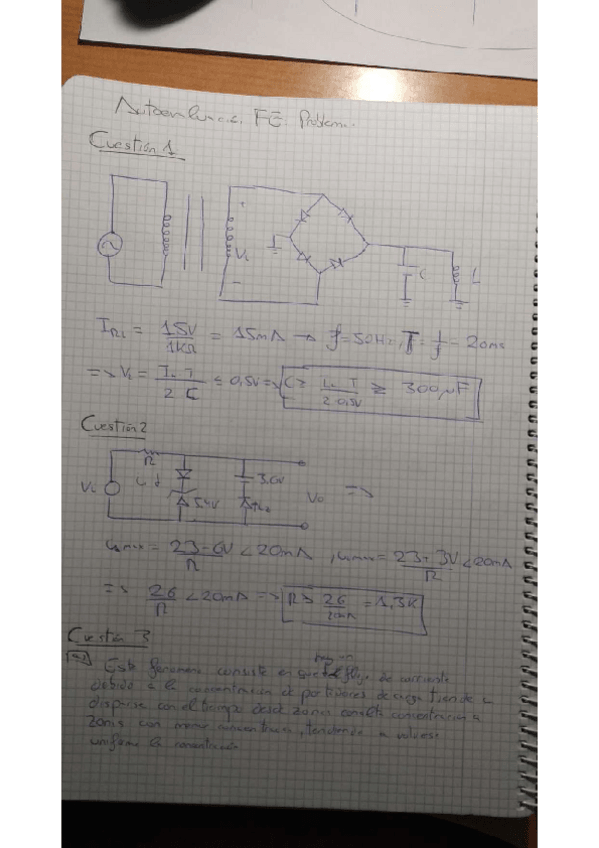 FE. Problema
Cuestión 1
V₁
C
L
= 15V/1kΩ = 15mA → f=50Hz, T = 1/f = 20ms
=> = I·T/2C ≤ 0,5V => C ≥ I·T/2·0,5V ≥ 300µF
Cuestión 2
R
Vi
5.4V
3.6V
Vo =>
= 23-6V/R < 20mA, = 23+3V/R < 20mA
=> 26/R < 20mA => R > 26/20mA = 1,3K
Cuestión 3
Este fenomeno consiste en que hay un flujo de corriente
debido a la concentracion de portadores de carga tiende a
con el tiempo desde zonas con alta concentracion a
zonas con menor concentracion, tendiendo a volverse
uniforme la concentracion